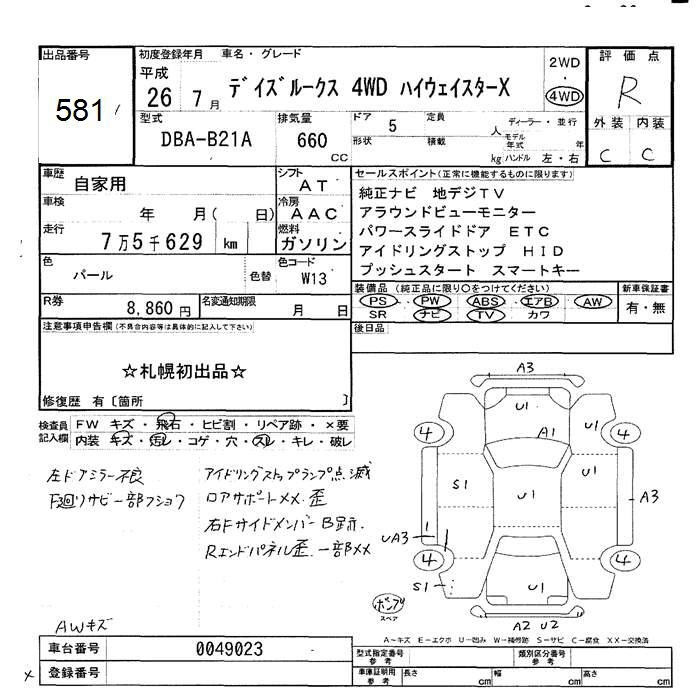 出品番号
581
初度登録年月 車名・グレード
平成 26 7月 デイズルークス 4WD ハイウェイスターX
2WD
・
4WD
評価点
R
外装 内装
C C
型式 排気量 ドア 5 定員 人 ディーラー・並行
DBA-B21A 660 CC 形状 積載 kg モデル年式 年
ハンドル 左・右
車歴 自家用
シフト AT
車検 年 月( 日)
冷房 AAC
走行 7万5千629 km
燃料 ガソリン
色 パール 色替
色コード W13
R券 8,860円 名変通知期限 月 日
セールスポイント(正常に機能するものに限ります)
純正ナビ 地デジTV
アラウンドビューモニター
パワースライドドア ETC
アイドリングストップ HID
プッシュスタート スマートキー
装備品(純正品に限り○をつけてください) 新車保証書
PS PW ABS エアB AW 有・無
SR ナビ TV カワ
後日品
注意事項申告欄(不具合内容等は具体的に記入して下さい)
☆札幌初出品☆
修復歴 有〔箇所 〕
検査員記入欄
FW キズ・飛石・ヒビ割・リペア跡・×要
内装 キズ・汚レ・コゲ・穴・スレ・キレ・破レ
左ドアミラー不良
下廻りサビ一部フショク
アイドリングストップランプ点滅
ロアサポートXX.歪
右Fサイドメンバー B跡.
Rエンドパネル歪.一部XX
AWキズ
A3
U1
A1
U1
4
4
S1
U1
U1
A3
UA3
4
4
S1
U1
A2 U2
ポンプ
スペア
A〜キズ E〜エクボ U〜凹み W〜補修跡 S〜サビ C〜腐食 XX〜交換済
車台番号 0049023
登録番号
×
型式指定番号 参考 類別区分番号 参考
車庫証明用 参考 長さ cm 幅 cm 高さ cm